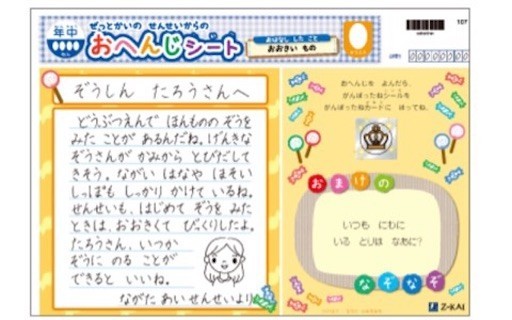 年中
ぜっとかいの せんせいからの
おへんじシート
おはなし した こと
おおきい もの
107
ぞうしん たろうさんへ
どうぶつえんで ほんものの ぞうを
みた ことが あるんだね。げんきな
ぞうさんが かみから とびだして
きそう。ながい はなや ほそい
しっぽも しっかり かけて いるね。
せんせいも、はじめて ぞうを みた
ときは、おおきくて びっくりしたよ。
たろうさん、いつか
ぞうに のる ことが
できると いいね。
ながた あい せんせいより
おへんじを よんだら、
がんばったねシールを
がんばったねカードに はってね。
おまけの
いつも にわに
いる とりは なあに?
なぞなぞ
Z-KAI